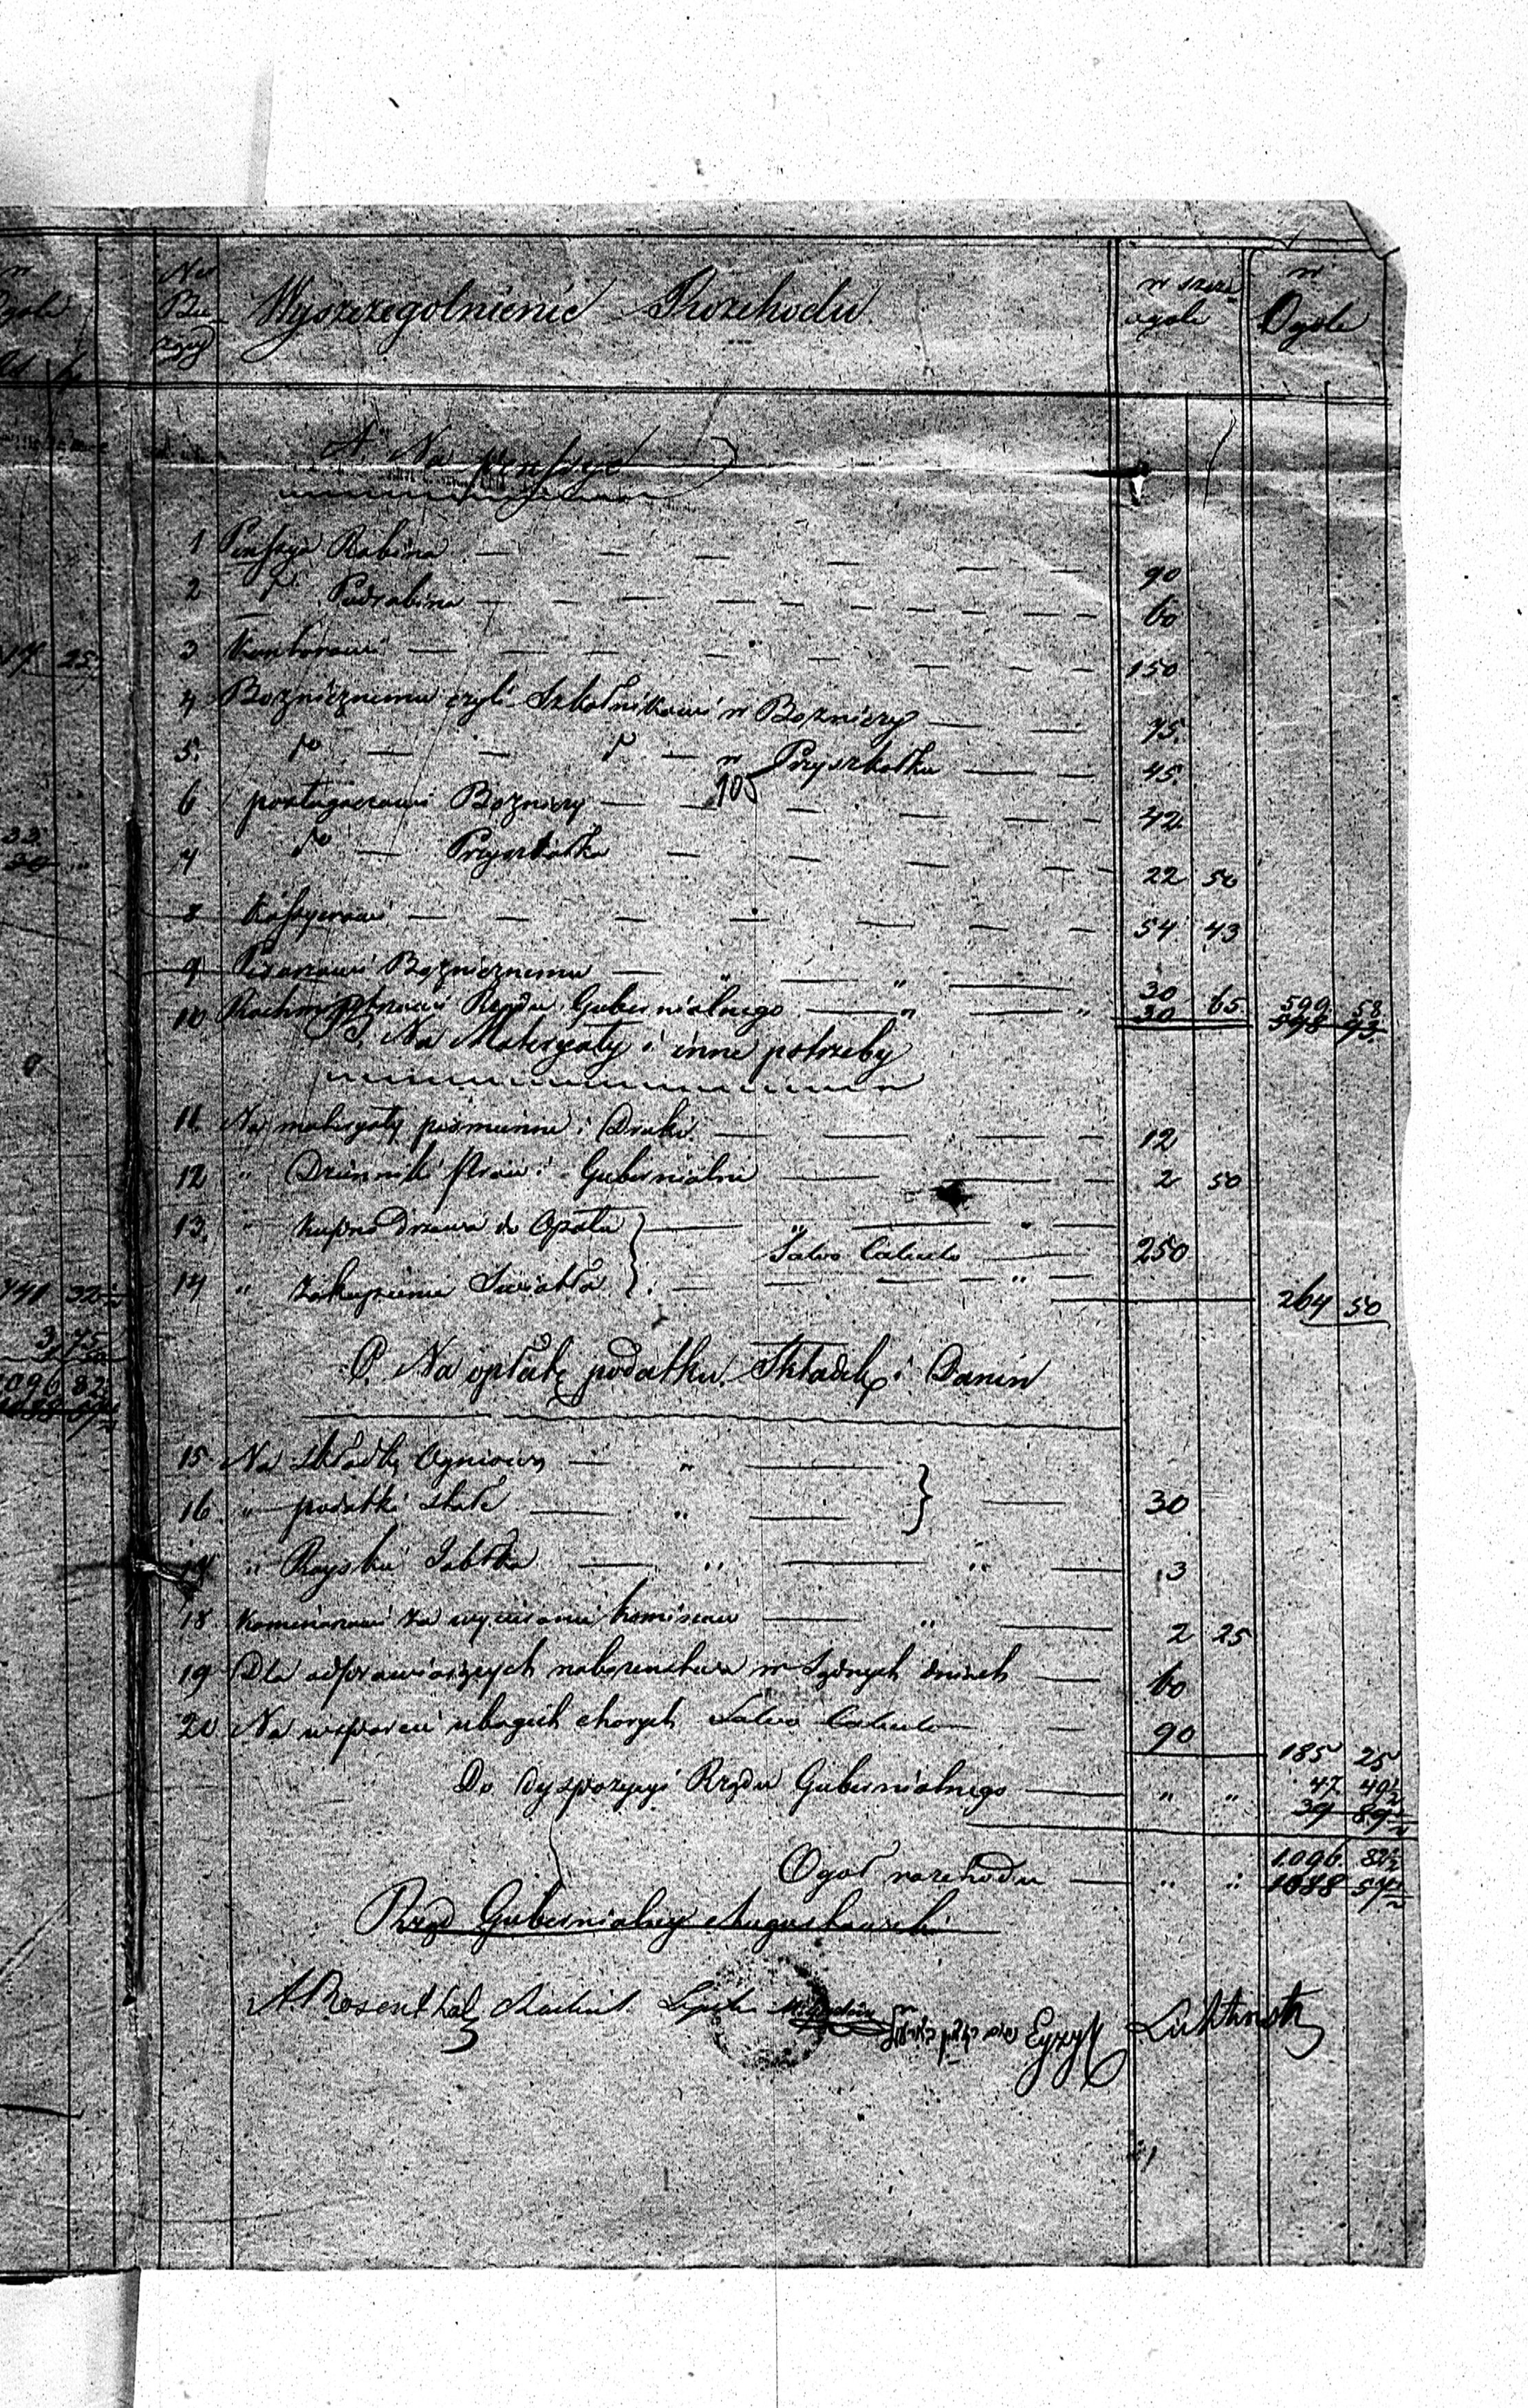 No Bieżący Wyszczegolnienie Rozchodu w szcze- ogole w Ogole
A. Na pensye
1 Pensya Rabina — 90
2 do Podrabina — 60
3 Kantorowi — 150
4 Bożnicznemu czyli Szkolnikowi w Bożnicy — 75
5. do — do — w Przyszkołku — 45
105
6 posługaczowi Bożnicy — 42
7 do — Przyszkołka — 22 50
8 Kassyerowi — 54 43
9 Pisarzowi Bożnicznemu — „ — „
10 Rachmistrzowi Rządu Gubernialnego — „ — „ 30 65 599 58
30 598 93
B. Na Materyały i inne potrzeby
11. Na materyały piśmienne i Druki — 12
12 „ Dziennik Praw i Gubernialni — 2 50
13. „ kupno drzewa do Opału — „ — „
Salvo Calculo — 250
14 „ zakupienie Światła — „
264 50
C. Na opłatę podatku Składek i Danin
15. Na składkę Ogniową — „
16. „ podatki stałe — „ — 30
17 „ Rayskie Jabłka — „ — „ 13
18. Kominiarowi za wycieranie kominow — „ — 2 25
19 Dla odprawiaiących nabozenstwa w Sądnych dniach — 60
20. Na wsparcie ubogich chorych Salvo Calculo — 90
185 25
Do dyspozycyi Rządu Gubernialnego — „ „ 47 49½
39 89½
Ogół rozchodu — „ „ 1096 82½
1088 57½
Rząd Gubernialny Augustowski
A. Rosenthal